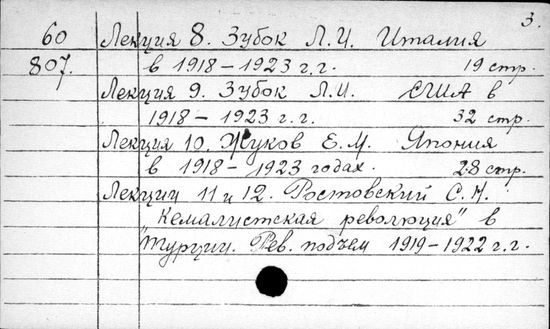 3.
60 Лекция 8. Зубок Л.И. Италия
807. в 1918–1923 г.г. 19 стр.
Лекция 9. Зубок Л.И. США в
1918–1923 г.г. 32 стр.
Лекция 10. Жуков Е.М. Япония
в 1918–1923 годах. 28 стр.
Лекции 11 и 12. Ростовский С.Н.
Кемалистская революция" в
"Турции. Рев. подъем 1919–1922 г.г.